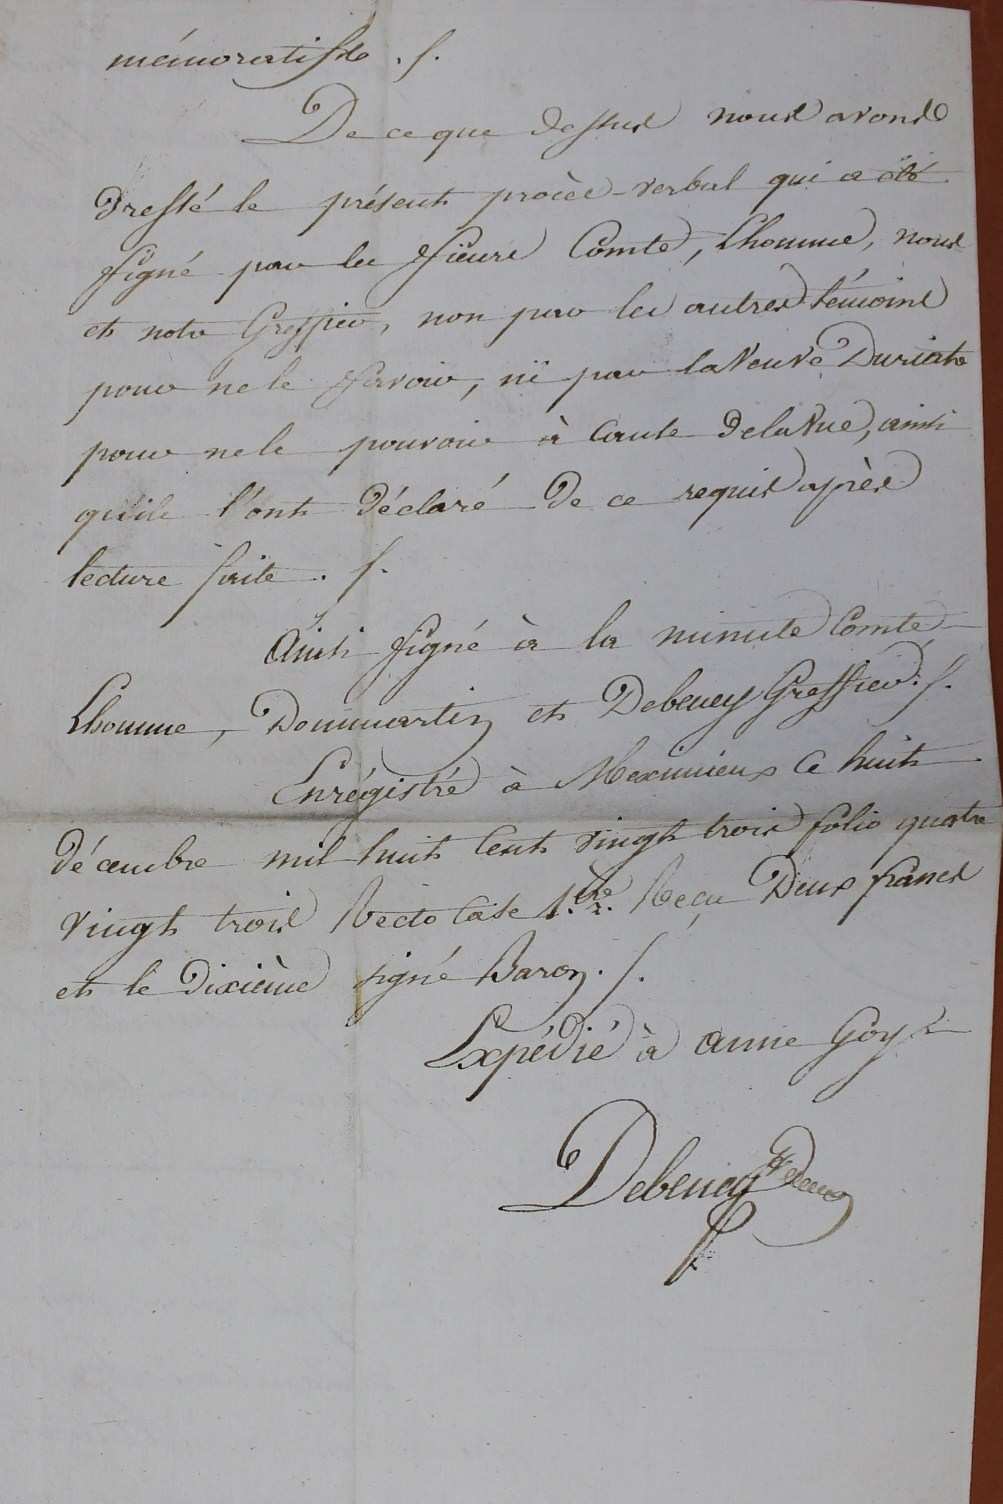 mémoratifs ./.
De ce que dessus nous avons
dressé le présent procès-verbal qui a été
signé par les sieurs Comte, Lhomme, nous
et notre Greffier, non par les autres témoins
pour ne le savoir, ni par la Veuve Duriat
pour ne le pouvoir à cause de la vue, ainsi
qu'ils l'ont déclaré de ce requis après
lecture faite ./.
Ainsi signé à la minute Comte
Lhomme, Dommartin et Debeney Greffier ./.
Enrégistré à Meximieux ce huit
décembre mil huit cent vingt trois folio quatre
vingt trois Recto Case 1.re Reçu Deux francs
et le dixième signé Baron ./.
Expédié à anne Goy
Debeney